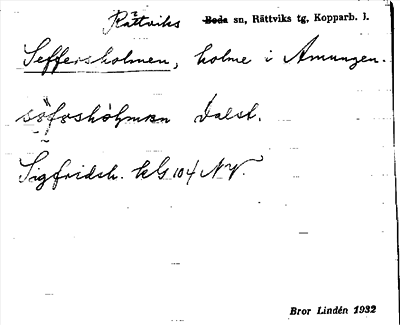 Rättviks Boda sn, Rättviks tg, Kopparb. l.
Seffersholmen, holme i Amungen.
söfəshòḷmən dalst.
Sigfridsh. kG 104 NV.
Bror Lindén 1932